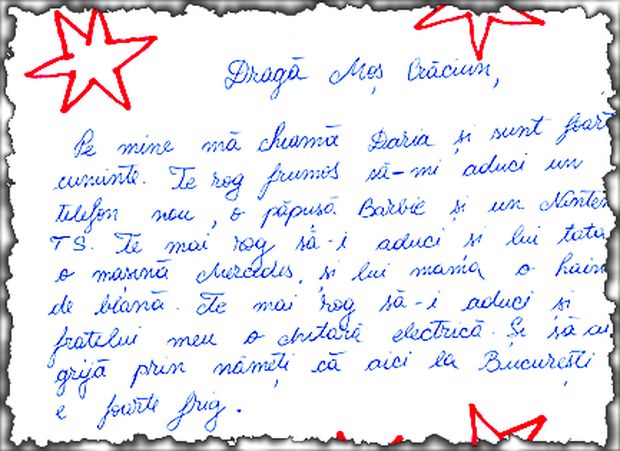 Dragă Moș Crăciun,
Pe mine mă cheamă Daria și sunt foart
cuminte. Te rog frumos să-mi aduci un
telefon nou, o păpușă Barbie și un Ninten
TS. Te mai rog să-i aduci și lui tata
o mașină Mercedes, și lui mama o hain
de blană. Te mai rog să-i aduci și
fratelui meu o chitară electrică. Și să ai
grijă prin nămeți că aici la București
e foarte frig.